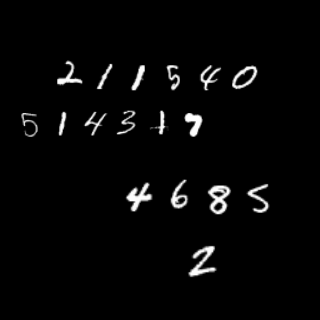 211540
514317
4685
2